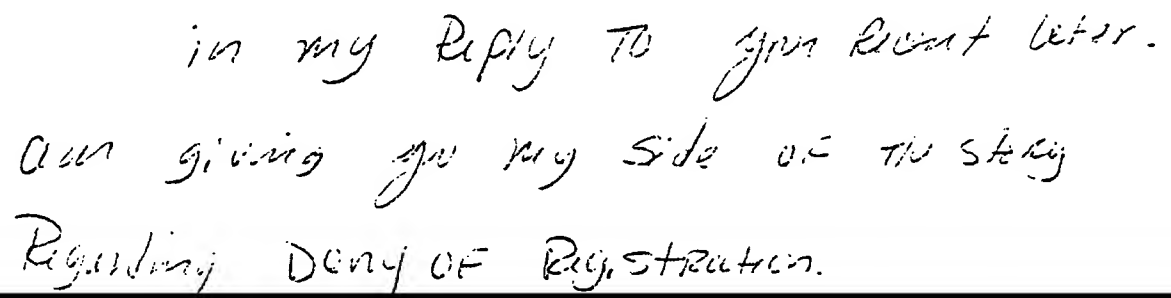 in my Reply To you Recent leter.
am giving you my side OF The stery
Regarding Deny OF Registration.